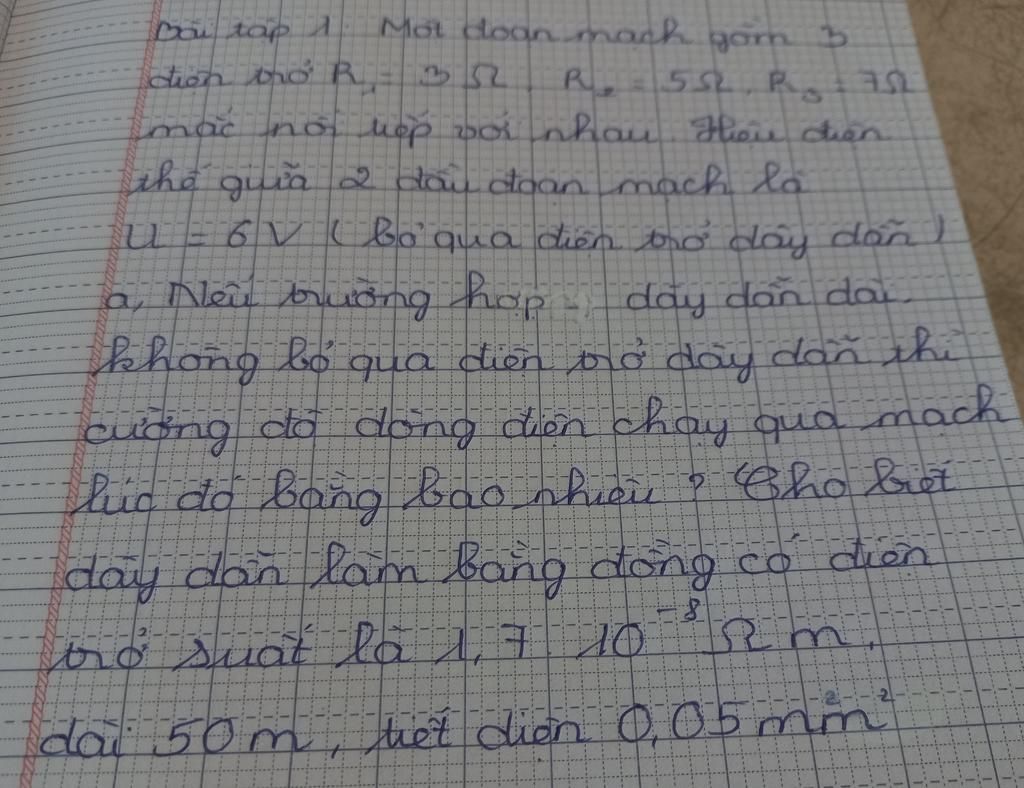 Bài tập 1. Một đoạn mạch gồm 3
điện trở R₁ = 3 Ω, R₂ = 5Ω, R₃ = 7Ω
mắc nối tiếp với nhau. Hiệu điện
thế giữa 2 đầu đoạn mạch là
U = 6 V (Bỏ qua điện trở dây dẫn)
a, Nếu trường hợp dây dẫn dài.
không bỏ qua điện trở dây dẫn thì
cường độ dòng điện chạy qua mạch
lúc đó bằng bao nhiêu? (Cho biết
dây dẫn làm bằng đồng có điện
trở suất là 1,7 10⁻⁸ Ω m,
dài 50m, tiết diện 0,05 mm²